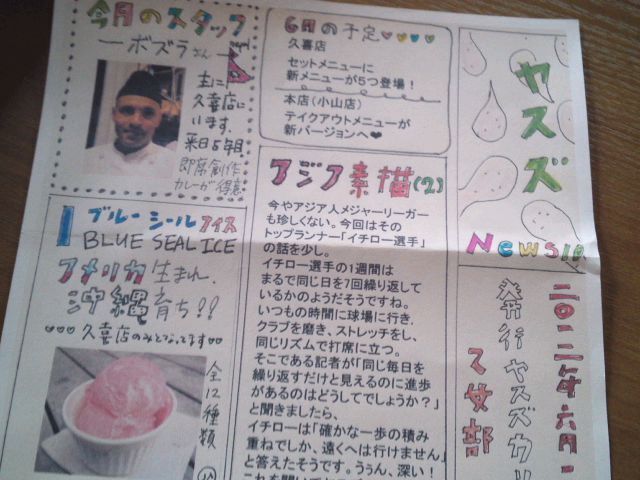 ヤスズ
News!!
二〇一二年六月
発行ヤスズカリ
乙女部
6月の予定♥♥♥♥♥
久喜店
セットメニューに
新メニューが5つ登場!
本店(小山店)
テイクアウトメニューが
新バージョンへ♥
今月のスタッフ
ーボズラさんー
主に
久喜店に
います。
来日5年目
即席創作
カレーが得意
アジア素描(2)
今やアジア人メジャーリーガー
も珍しくない。今回はその
トップランナー「イチロー選手」
の話を少し。
イチロー選手の1週間は
まるで同じ日を7回繰り返して
いるかのようだそうですね。
いつもの時間に球場に行き、
クラブを磨き、ストレッチをし、
同じリズムで打席に立つ。
そこである記者が「同じ毎日を
繰り返すだけと見えるのに進歩
があるのはどうしてでしょうか?」
と聞きましたら、
イチローは「確かな一歩の積み
重ねでしか、遠くへは行けません」
と答えたそうです。ううん、深い!
ブルーシールアイス
BLUE SEAL ICE
アメリカ生まれ、
沖縄育ち!!
♥♥♥久喜店のみとなってます♥♥
全12種類